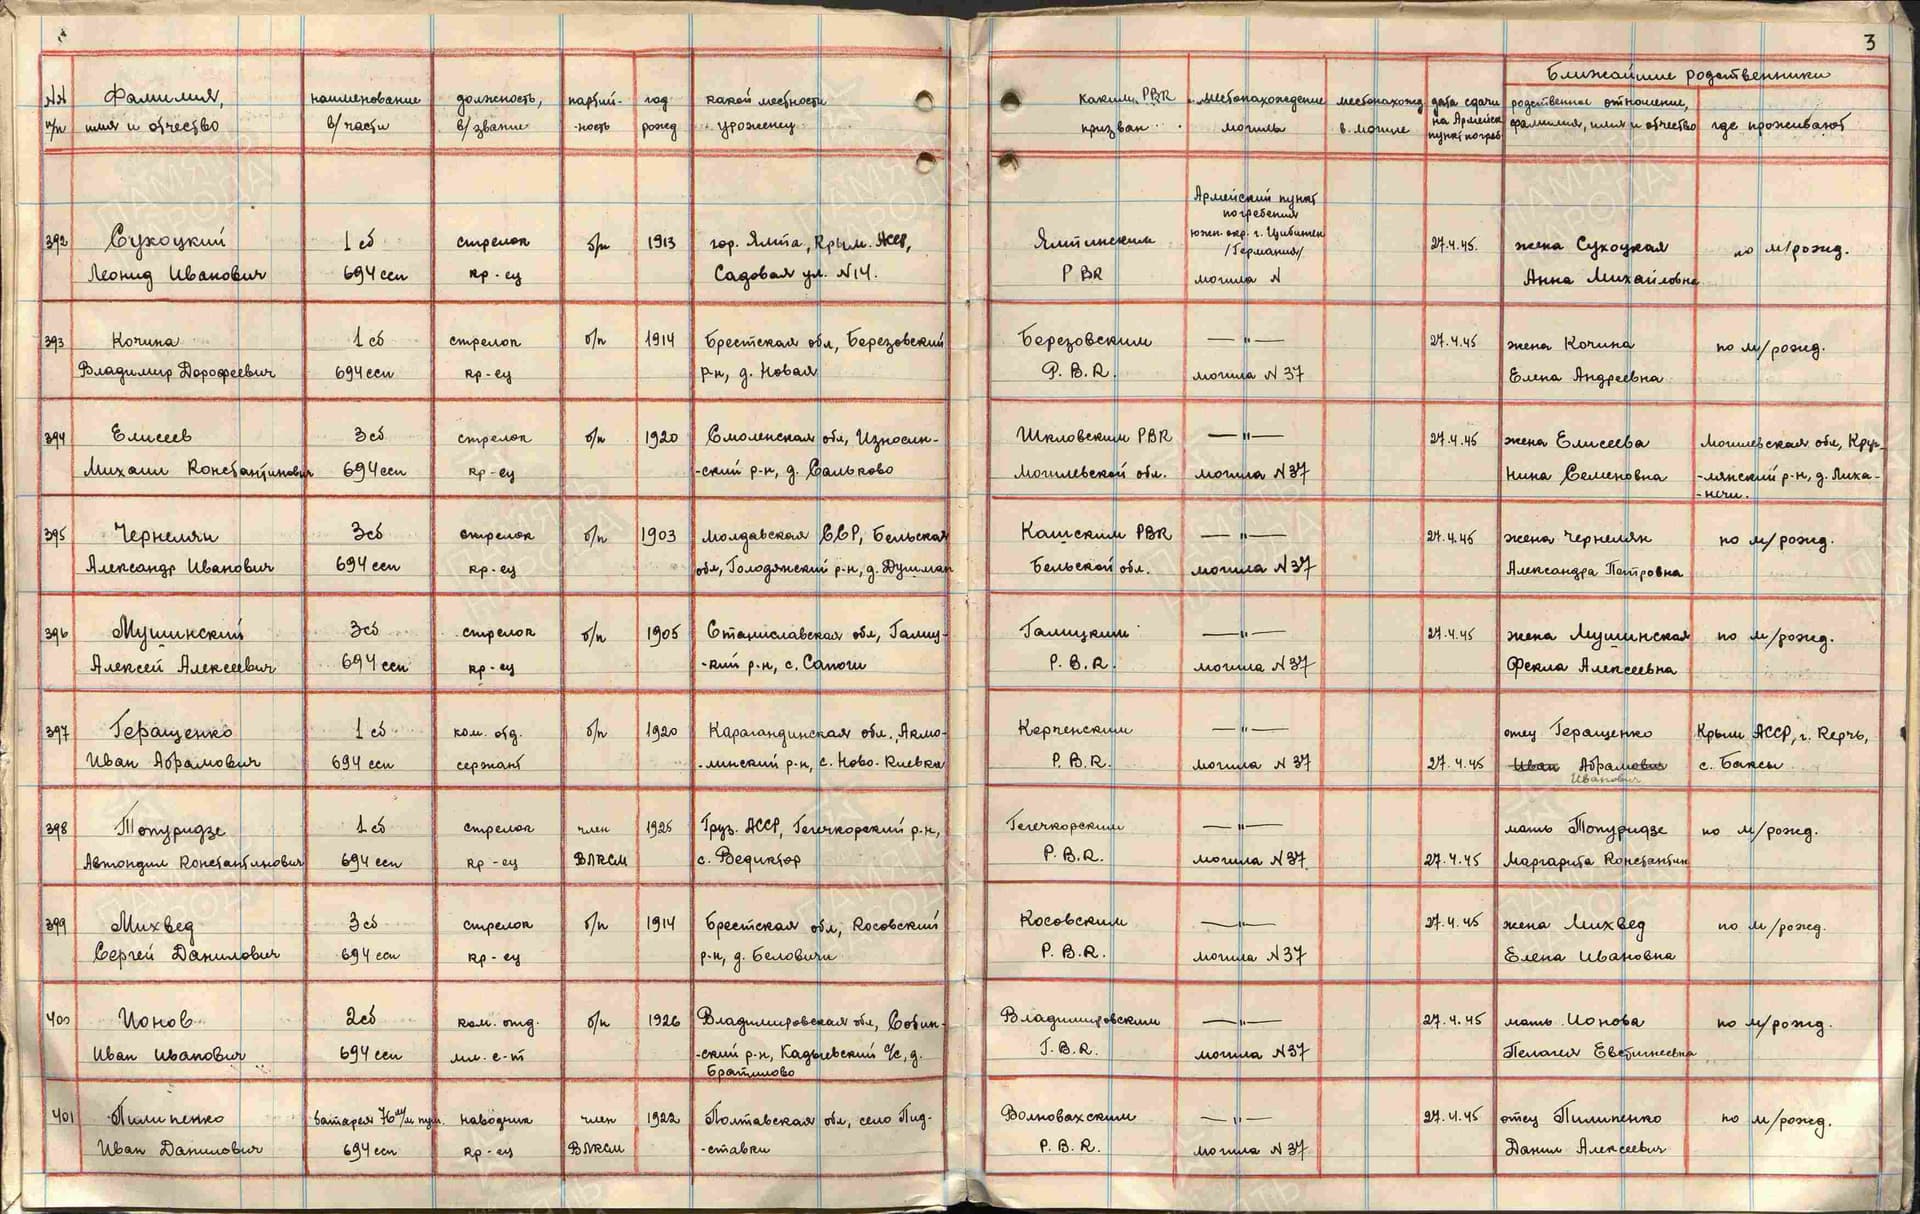 3
Ближайшие родственники
№№ Фамилия, наименование должность, партий- год какой местности каким РВК местонахождение местонахожд. дата сдачи родственное отношение,
п/п имя и отчество в/части в/звание -ность рожд уроженец призван могилы в могиле на Армейск. пункт погреб. фамилия, имя и отчество где проживают
Армейский пункт
погребения
южн. окр. г. Цибинген
/Германия/
392 Сухоцкий 1 сб стрелок б/п 1913 гор. Ялта, Крым. АССР, Ялтинским 27.4.45. жена Сухоцкая по м/рожд.
Леонид Иванович 694 ссп кр-ец Садовая ул. N14. РВК могила N Анна Михайловна
393 Кочина 1 сб стрелок б/п 1914 Брестская обл, Березовский Березовским —"— 27.4.45 жена Кочина по м/рожд.
Владимир Дорофеевич 694 ссп кр-ец р-н, д. Новая Р.В.К. могила N 37 Елена Андреевна
394 Елисеев 3 сб стрелок б/п 1920 Смоленская обл, Износин- Шкловским РВК —"— 27.4.45 жена Елисеева Могилевская обл, Круг-
Михаил Константинович 694 ссп кр-ец -ский р-н, д. Сальково Могилевской обл. могила N 37 Нина Семеновна -лянский р-н, д. Лиха-
-ничи.
395 Чернелян 3сб стрелок б/п 1903 Молдавская ССР, Бельская Кашским РВК —"— 27.4.45 жена Чернелян по м/рожд.
Александр Иванович 694 ссп кр-ец обл, Голодянский р-н, д. Душман Бельской обл. могила N 37 Александра Петровна
396 Мушинский 3сб стрелок б/п 1905 Станиславская обл, Галиц- Галицким —"— 27.4.45 жена Мушинская по м/рожд.
Алексей Алексеевич 694 ссп кр-ец -кий р-н, с. Сапоги Р.В.К. могила N 37 Фекла Алексеевна
397 Геращенко 1 сб ком. отд. б/п 1920 Карагандинская обл., Акмо- Керченским —"— отец Геращенко Крым АССР, г. Керчь,
Иван Абрамович 694 ссп сержант -линский р-н, с. Ново-Киевка Р.В.К. могила N 37 27.4.45 Иван Абрамович с. Баксы
Иванович
398 Топуридзе 1 сб стрелок член 1925 Груз. АССР, Гегечкорский р-н, Гегечкорским —"— мать Топуридзе по м/рожд.
Автондил Константинович 694 ссп кр-ец ВЛКСМ с. Ведиктор Р.В.К. могила N 37. 27.4.45 Маргарита Константин
399 Михвед 3 сб стрелок б/п 1914 Брестская обл, Косовский Косовским —"— 27.4.45 жена Михвед по м/рожд.
Сергей Данилович 694 ссп кр-ец р-н, д. Беловичи Р.В.К. могила N 37 Елена Ивановна
400 Ионов 2сб ком. отд. б/п 1926 Владимировская обл, Собин- Владимировским —"— 27.4.45 мать Ионова по м/рожд.
Иван Иванович 694 ссп мл. с-т -ский р-н, Кадыевский с/с, д. Г.В.К. могила N 37 Пелагея Евстигнеевна
Братилово
401 Пилипенко батарея 76 м/м пуш. наводчик член 1922 Полтавская обл, село Пид- Волновахским —"— 27.4.45 отец Пилипенко по м/рожд.
Иван Данилович 694 ссп кр-ец ВЛКСМ -ставки Р.В.К. могила N 37 Данил Алексеевич